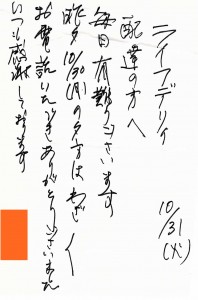 ライフデリ
配達の方へ
毎日有難うございます
昨夕10/30(月)の夕方はわざ〳〵
お電話いただきありがとうございました
いつも感謝しております
10/31
(火)